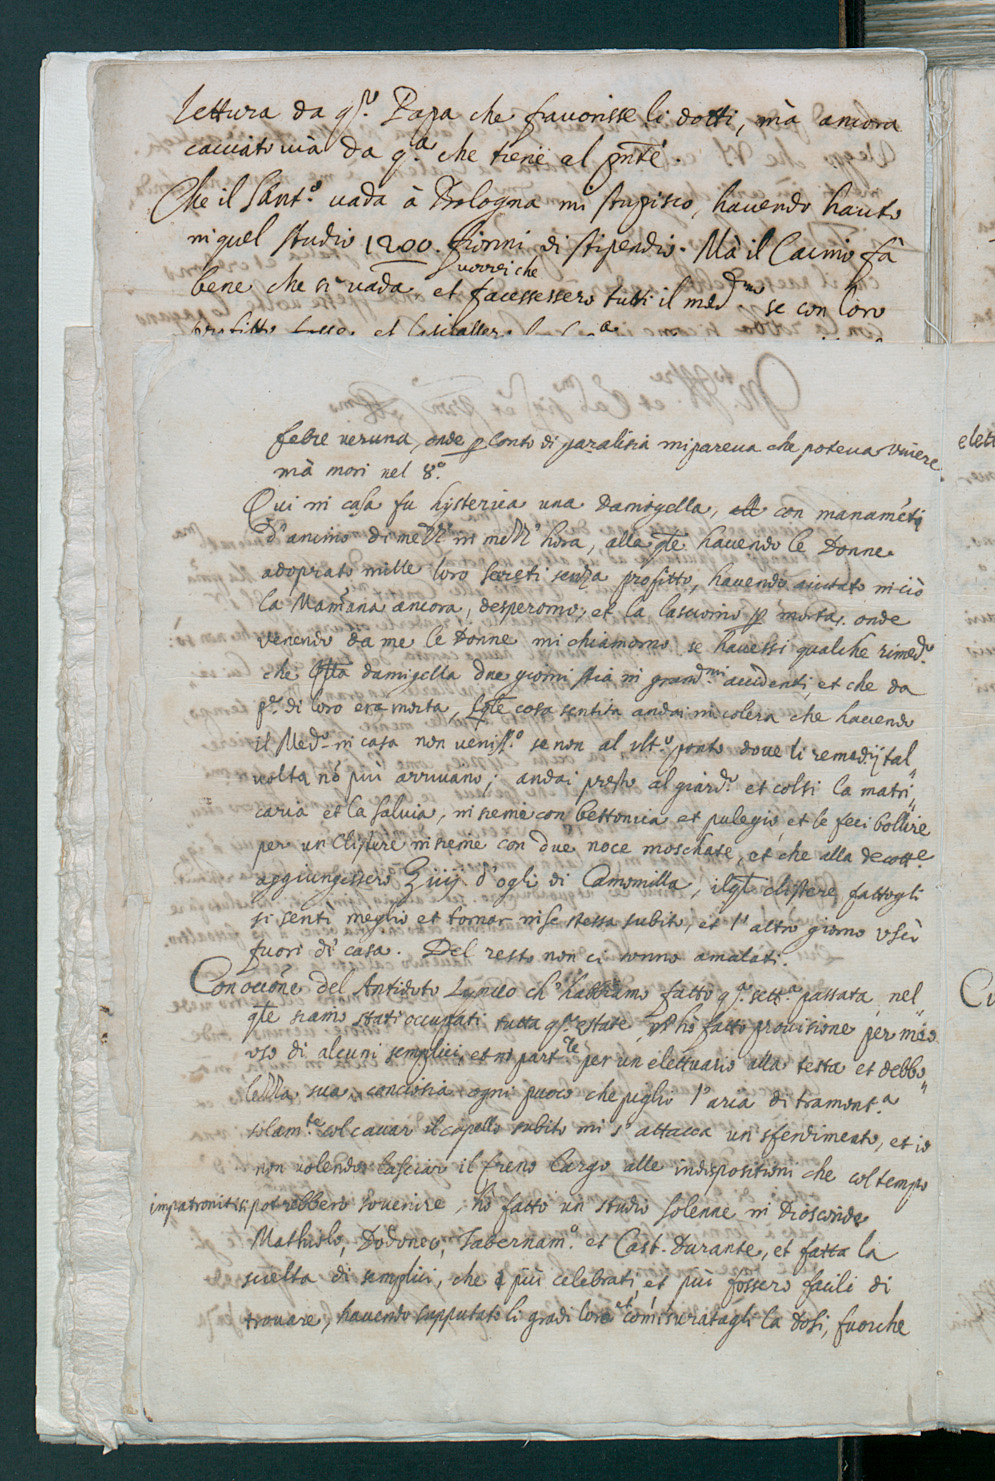 lettura da q.sto Papa che favorisse li dotti, mà ancora
cacciato via da q.a che tiene al pnte.
Che il Sant.o vada à Bologna mi stupisco, havendo hauto
in quel studio 1200. fiorini di stipendio. Mà il Caimo fà
bene che si vada et vorrei che facessero tutti il med.mo se con loro
profitto fosse, et lasciassero
febre veruna, onde p conto di paralisia mi pareva che poteva vivere
mà morì nel 8.o
Qui in casa fu hysterica una Damigella, con mancamēti
d'animo di mezz' in mezz' hora, alla qle havendo le Donne
adoprato mille loro secreti senza profitto, havendo aiutato in ciò
la Mam̄ana ancora, desperorno, et la lasciorno p morta, onde
venendo da me le Donne mi chiamorno se havessi qualche rimed.o
che detta damigella due giorni stia in grand.mi accidenti, et che da
p.te di loro era morta, qle cosa sentita andai in colera che havendo
il Med.o in casa non veniss.o se non al ult.o ponto dove li remedij tal
volta nō più arrivano; andai presto al giard.o et colsi la matri
caria et la salvia, insieme con bettonica et pulegio, et le feci bollire
per un clistere insieme con due noce moschate, et che alla decott.e
aggiungessero ℥iiij d'oglio di Camomilla, il qle clistere, fattogli
si sentì meglio et tornar in se stessa subito, et l'altro giorno uscì
fuori di casa. Del resto non ci sonno amalati.
Con occ̄one del Antidoto Lynceo ch' habbiamo fatto q.a sett.a passata, nel
qle siamo stati occupati tutta q.a estate, ho fatto provisione per mio
uso di alcuni semplici, et in part.re per un elettuario alla testa et debbo
lezza sua, conciosia ogni puoco che piglio l'aria di tramont.a
solam.te col cavar il capello subito mi s'attacca un sfendimento, et io
non volendo lasciar il freno largo alle indispositioni che col tempo
impatronitisi potrebbero sovenire, hò fatto un studio solenne in Dioscoride
Mathiolo, Dodoneo, Tabernam.o et Cast. Durante, et fatta la
scielta di semplici, che più celebrati et più fossero facili di
trovare, havendo supputato li gradi loro et com̄isuratagli la dosi, fuorche